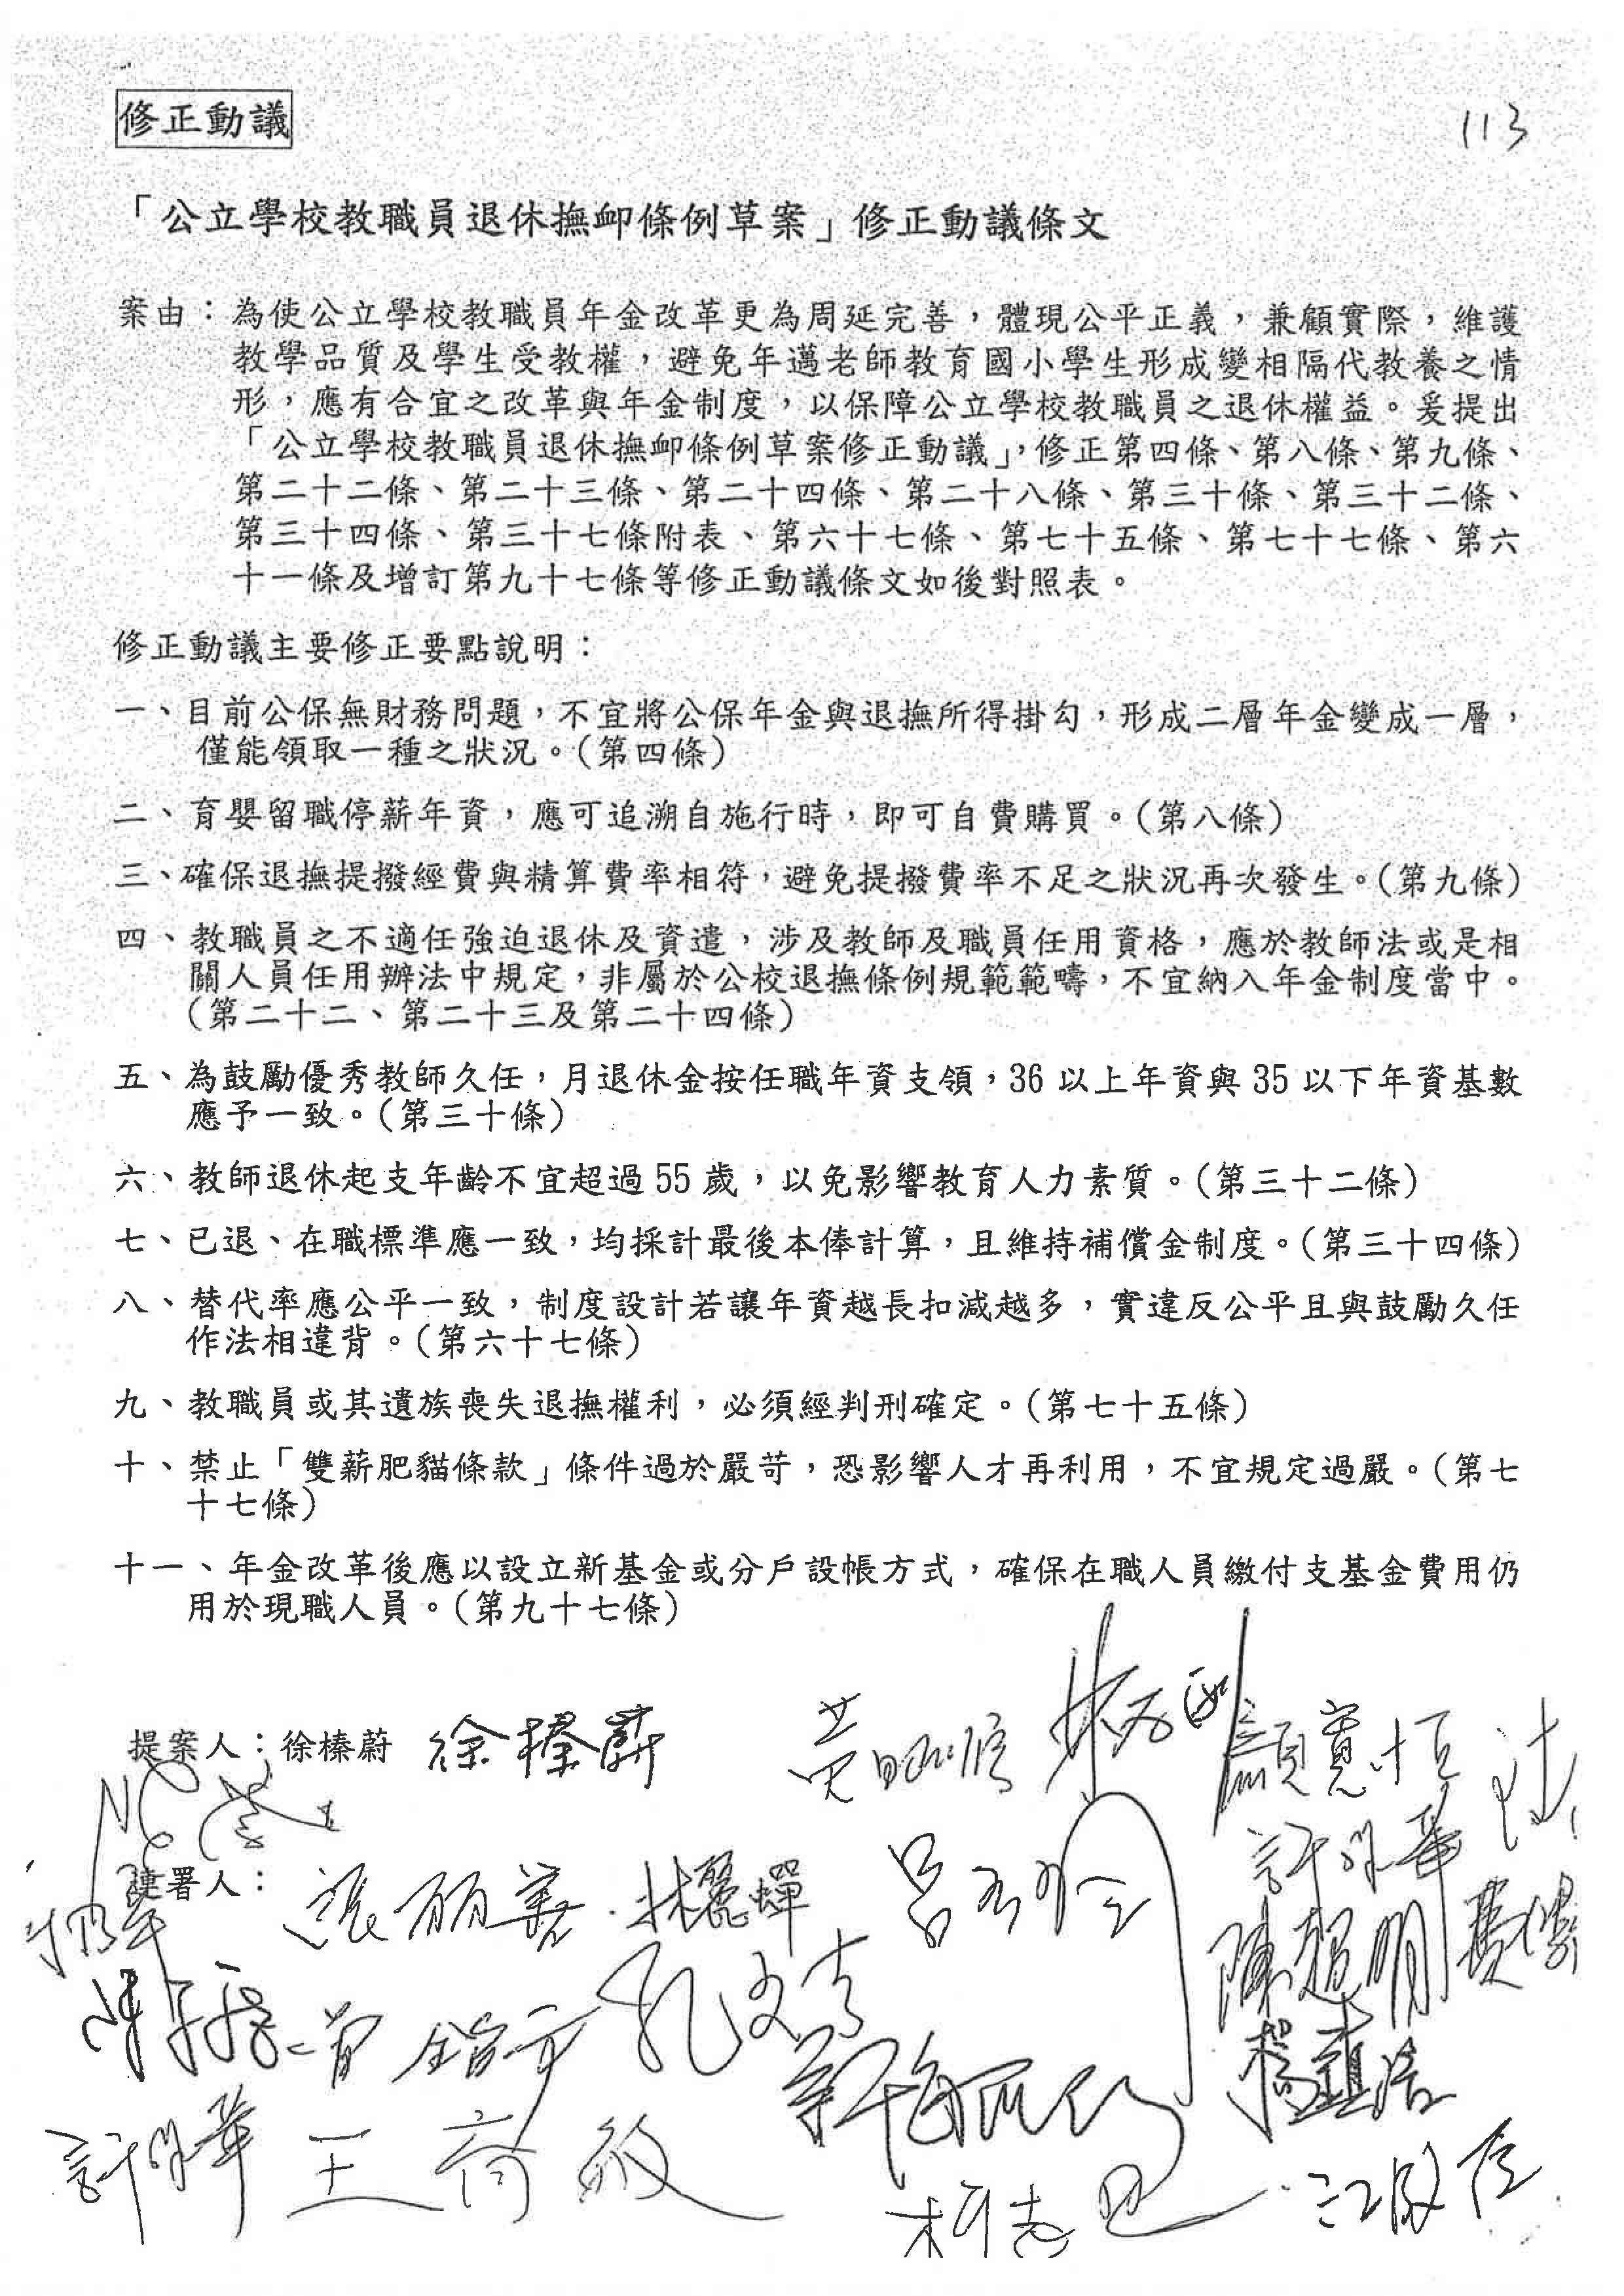 修正動議
113
「公立學校教職員退休撫卹條例草案」修正動議條文
案由：為使公立學校教職員年金改革更為周延完善，體現公平正義，兼顧實際，維護
教學品質及學生受教權，避免年邁老師教育國小學生形成變相隔代教養之情
形，應有合宜之改革與年金制度，以保障公立學校教職員之退休權益。爰提出
「公立學校教職員退休撫卹條例草案修正動議」，修正第四條、第八條、第九條、
第二十二條、第二十三條、第二十四條、第二十八條、第三十條、第三十二條、
第三十四條、第三十七條附表、第六十七條、第七十五條、第七十七條、第六
十一條及增訂第九十七條等修正動議條文如後對照表。
修正動議主要修正要點說明：
一、目前公保無財務問題，不宜將公保年金與退撫所得掛勾，形成二層年金變成一層，
僅能領取一種之狀況。（第四條）
二、育嬰留職停薪年資，應可追溯自施行時，即可自費購買。（第八條）
三、確保退撫提撥經費與精算費率相符，避免提撥費率不足之狀況再次發生。（第九條）
四、教職員之不適任強迫退休及資遣，涉及教師及職員任用資格，應於教師法或是相
關人員任用辦法中規定，非屬於公校退撫條例規範範疇，不宜納入年金制度當中。
（第二十二、第二十三及第二十四條）
五、為鼓勵優秀教師久任，月退休金按任職年資支領，36 以上年資與 35 以下年資基數
應予一致。（第三十條）
六、教師退休起支年齡不宜超過 55 歲，以免影響教育人力素質。（第三十二條）
七、已退、在職標準應一致，均採計最後本俸計算，且維持補償金制度。（第三十四條）
八、替代率應公平一致，制度設計若讓年資越長扣減越多，實違反公平且與鼓勵久任
作法相違背。（第六十七條）
九、教職員或其遺族喪失退撫權利，必須經判刑確定。（第七十五條）
十、禁止「雙薪肥貓條款」條件過於嚴苛，恐影響人才再利用，不宜規定過嚴。（第七
十七條）
十一、年金改革後應以設立新基金或分戶設帳方式，確保在職人員繳付支基金費用仍
用於現職人員。（第九十七條）
提案人：徐榛蔚 徐榛蔚 黃昭順 顏寬恒
連署人： 張麗善 林麗蟬 呂玉玲 許淑華
陳超明
曾銘宗 孔文吉
楊鎮浯
許淑華 王育敏
柯志恩 江啟臣